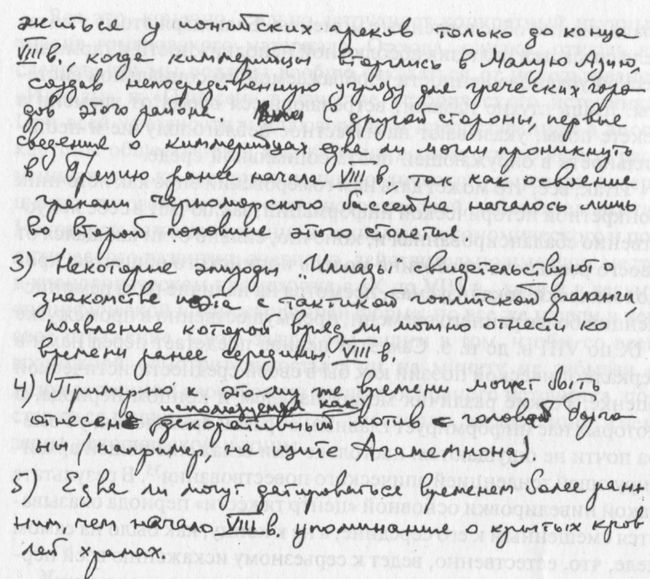 житься у малоазийских греков только до конца
VIII в., когда киммерийцы вторглись в Малую Азию,
создав непосредственную угрозу для греческих горо-
дов этого района. С другой стороны, первые
сведения о киммерийцах едва ли могли проникнуть
в Грецию ранее начала VIII в., так как освоение
греками Черноморского бассейна началось лишь
во второй половине этого столетия.
3) Некоторые эпизоды "Илиады" свидетельствуют о
знакомстве поэта с тактикой гоплитской фаланги,
появление которой вряд ли можно отнести ко
времени ранее середины VIII в.
4) Примерно к этому же времени может быть
используемый как
отнесен декоративный мотив – голова Горго
ны (например, на щите Агамемнона)
5) Едва ли могут датироваться временем более ран-
ним, чем начало VIII в. упоминание о крытых кров
лей, храмах.